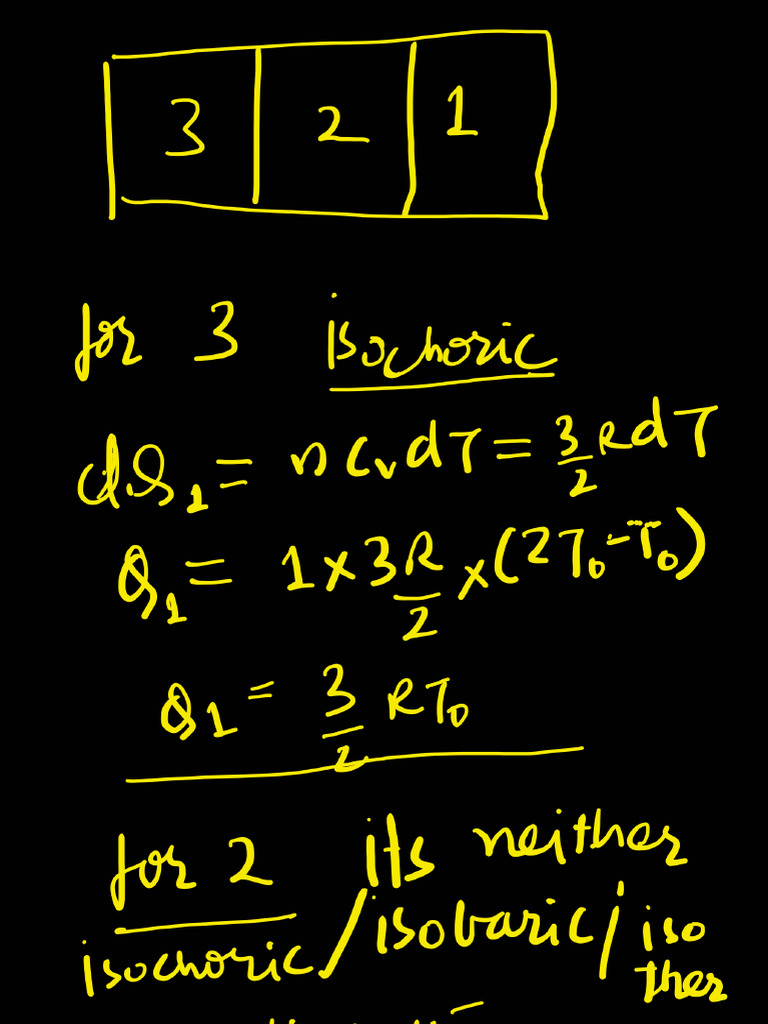 3 2 1
for 3 isochoric
dQ₁ = nCᵥdT = 3/2 RdT
Q₁ = 1 × 3R/2 × (2T₀ - T₀)
Q₁ = 3/2 RT₀
for 2 its neither
isochoric/isobaric/iso
ther